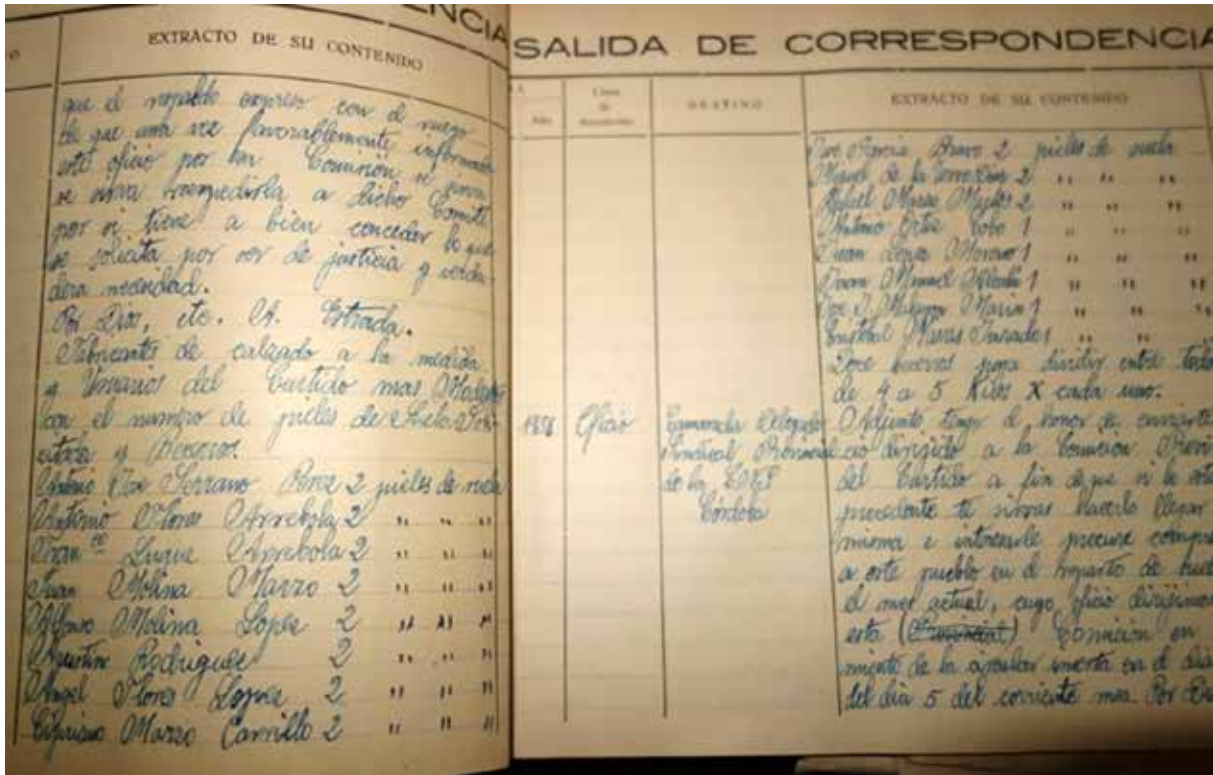 ENCIA
EXTRACTO DE SU CONTENIDO
que el respaldo expreso con el ruego
de que una vez favorablemente informado
este oficio por esa Comisión se sirva
se sirva a dicho Comité
por si tiene a bien conceder lo que
se solicita por ser de justicia y verda-
dera necesidad.
Por Dios, etc. A. Estrada.
Fabricantes de calzado a la medida
y Usuarios del Curtido mas Modestos
con el numero de pieles de Suela
y Becerros.
Antonio Jose Serrano Perez 2 pieles de suela
Antonio Flores Arrebola 2 " " "
Luque Arrebola 2 " " "
Juan Molina Marzo 2 " " "
Alfonso Molina Lopez 2 " " "
Agustin Rodriguez 2 " " "
Angel Flores Lopez 2 " " "
Cipriano Marzo Carrillo 2 " " "
SALIDA DE CORRESPONDENCIA
Año
Clase de documento
DESTINO
EXTRACTO DE SU CONTENIDO
Jose Garcia Bravo 2 pieles de suela
de la Torre 2 " " "
Rafael 2 " " "
Antonio Ortiz Cobo 1 " " "
Juan Lopez Moreno 1 " " "
Juan Manuel 1 " " "
Jose J. Marin 1 " " "
Cristobal 1 " " "
Doce becerros para dividir entre todos
de 4 a 5 Kilos X cada uno.
1938 Oficio Camarada Delegado Adjunto tengo el honor de enviarte
Sindical Provincial cio dirigido a la Comision Provin
de la Córdoba del Curtido a fin de que si lo
precedente te sirvas hacerlo llegar
misma e interesarle procure
a este pueblo en el reparto de
el mes actual, cuyo oficio dirigimos
esta (Provincial) Comision en
miento de la circular inserta en el
del dia 5 del corriente mes. Por